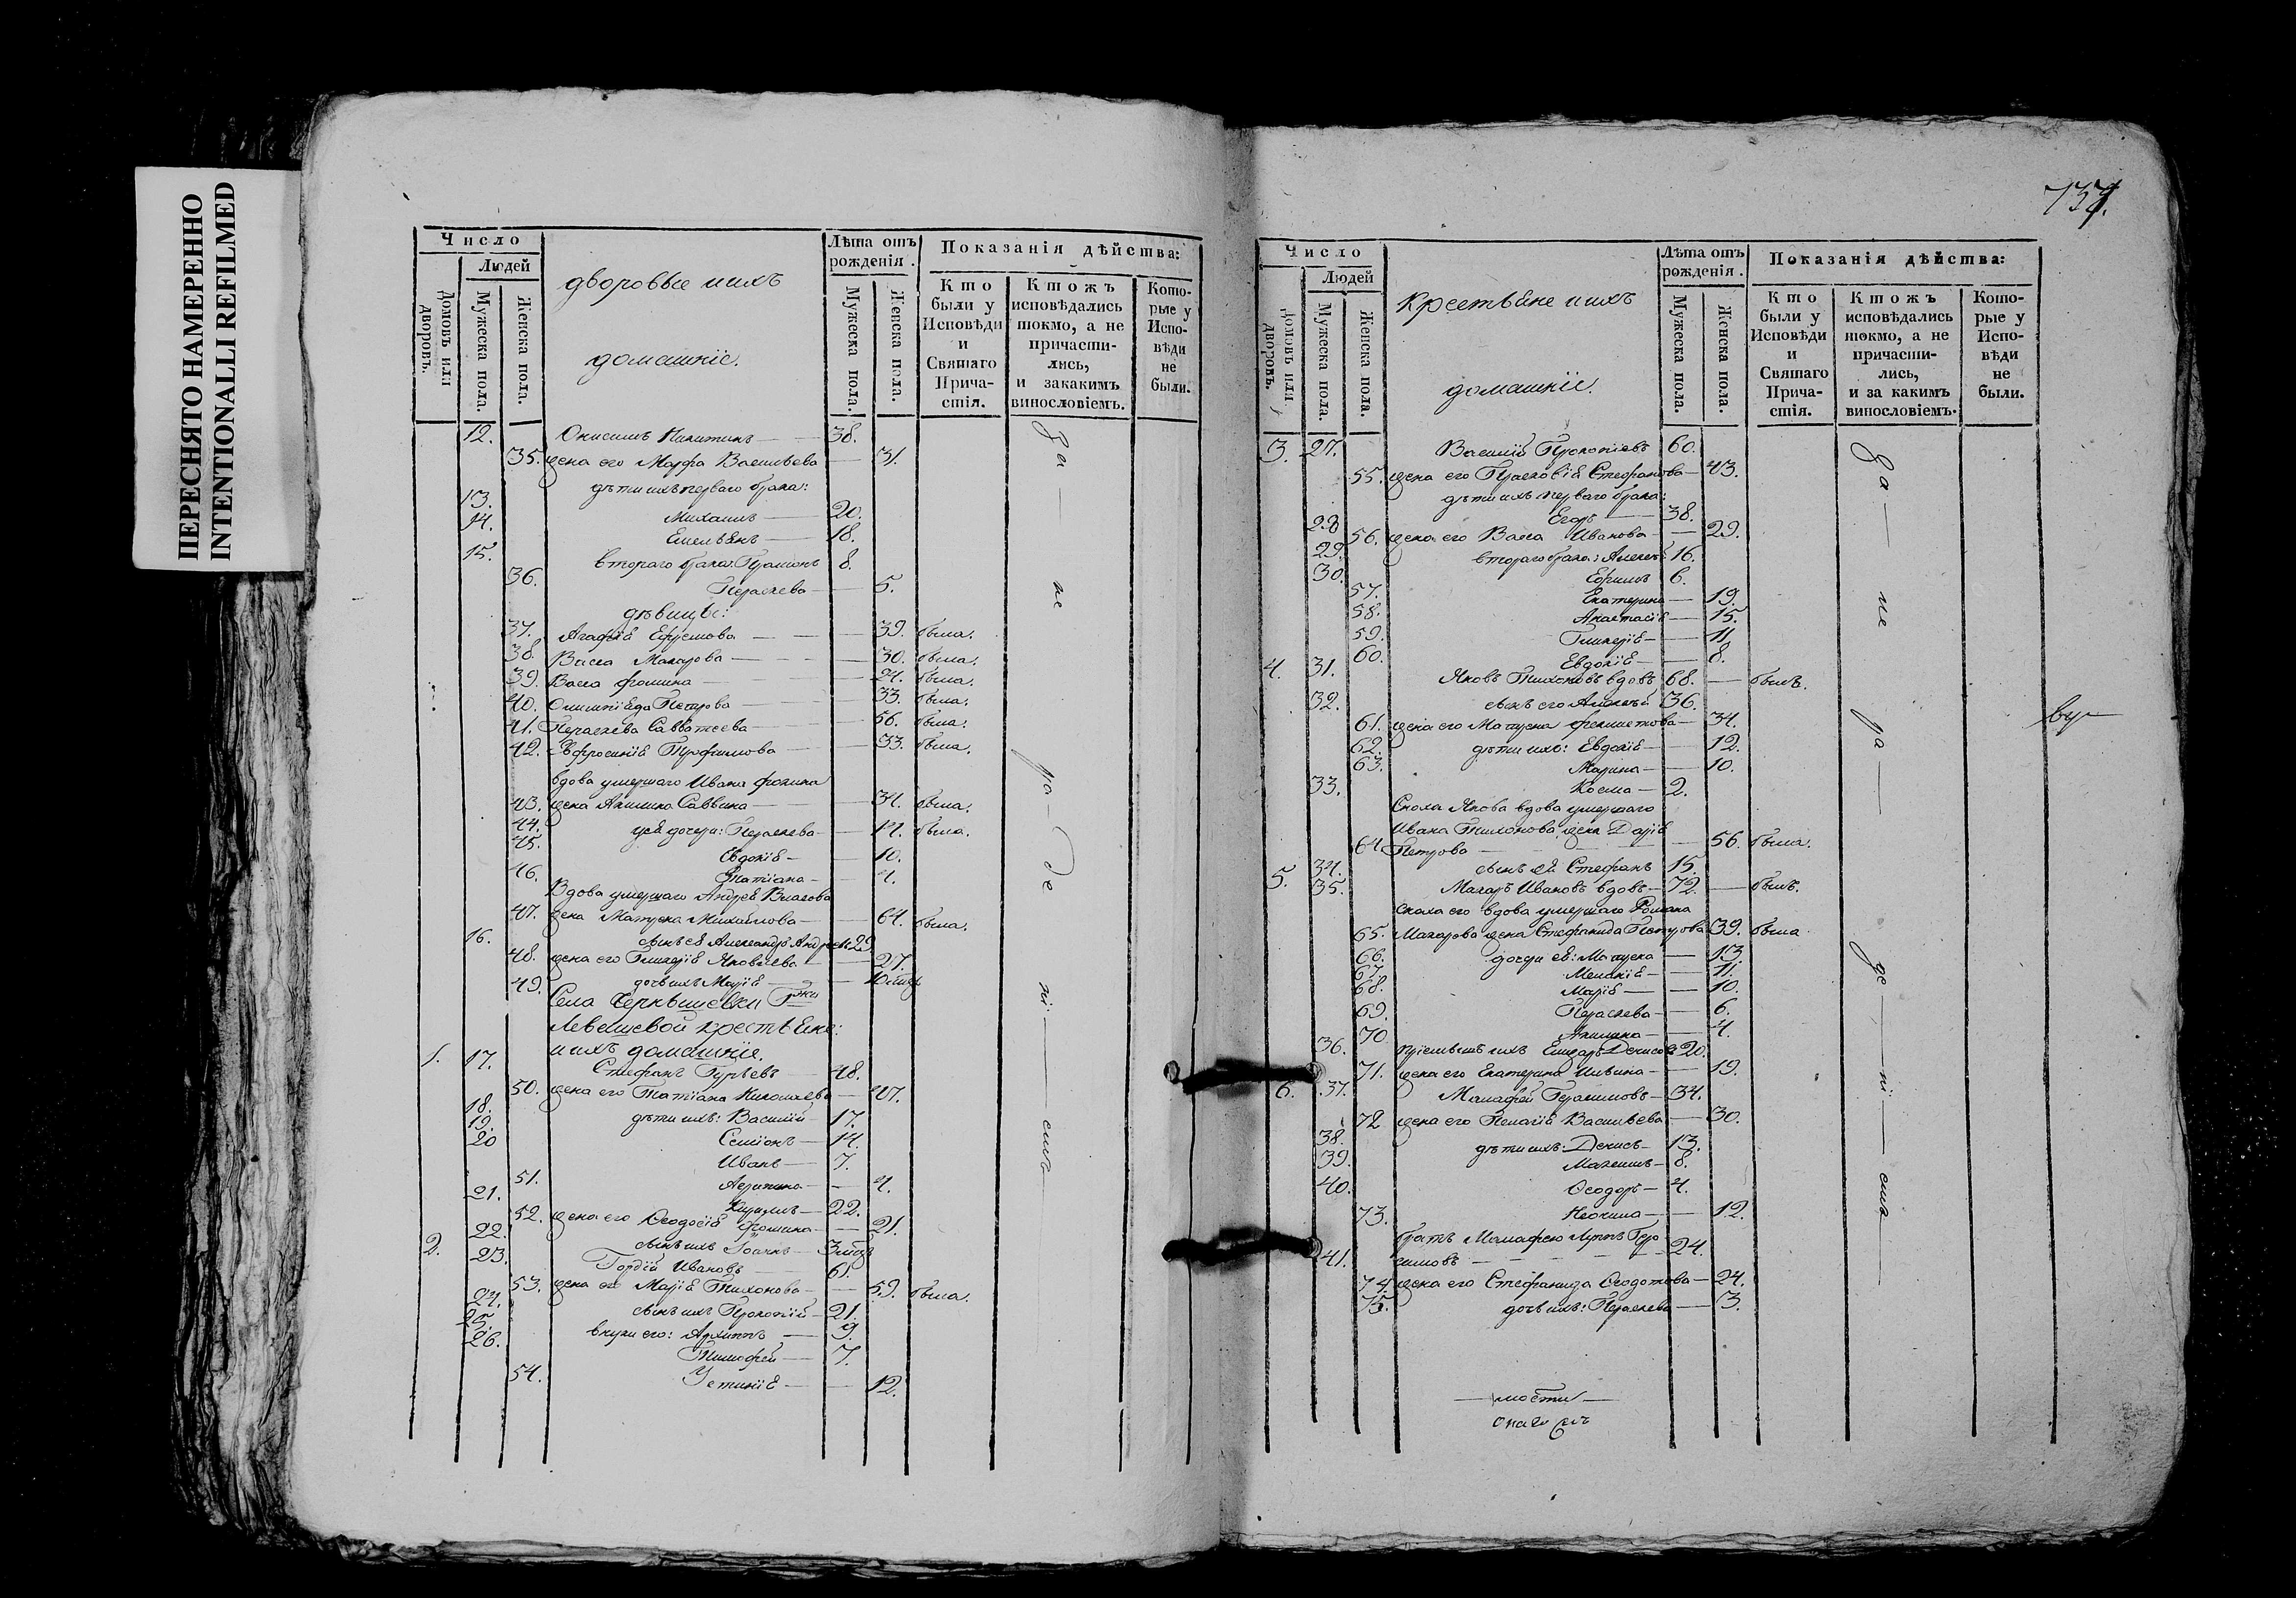 ПЕРЕСНЯТО НАМЕРЕННО
INTENTIONALLI REFILMED
Число
Людей
Домовъ или дворовъ.
Мужеска пола.
Женска пола.
дворовые и ихъ
домашніе.
Лѣта отъ рожденія.
Мужеска пола.
Женска пола.
Показанія дѣйства:
Кто были у Исповѣди и Святаго Прича-стія.
Ктожъ исповѣдались токмо, а не причасти-лись, и закакимъ винословіемъ.
Кото-рые у Испо-вѣди не были.
12. Онисимъ Никитинъ 38.
35. жена его Марфа Васильева 31.
дѣти ихъ перваго брака:
13. Михаилъ 20.
14. Емельянъ 18.
15. втораго брака: 8.
36. Параскева 5.
дѣвицы:
37. Агафія Ефремова 39. была.
38. Васса Макарова 30. была.
39. Васса Фомина 24. была.
40. Петрова 33. была.
41. Параскева Савватеева 56. была.
42. Евфросинія Трофимова 33. была.
вдова умершаго Ивана Фомина
43. жена Акилина Саввина 34. была.
44. уея дочери: Параскева 14. была.
45. Евдокія 10.
46. Татіана 4.
Вдова умершаго Андрея Власова
47. жена Матрена Михайлова 64. была.
16. сынъ ея Александръ Андреевъ 29
48. жена его Гликерія Яковлева 27.
49. дочь ихъ Марія
Села
Левашевой крестьяне:
и ихъ домашніе.
1. 17. Стефанъ Гурьевъ 48.
50. жена его Татіана Николаева 47.
18. дѣти ихъ: Василій 17.
19. Симіонъ 14.
20 Иванъ 7.
51. Агрипина 4.
21. Кириллъ 22.
52. жена его Ѳеодосія Фомина 21.
22. сынъ ихъ Іоаннъ
2. 23. Гордій Ивановъ 61.
53. жена его Марія Тихонова 59. была.
24. сынъ ихъ Прокопій 21.
25. внуки его: Архиппъ 9.
26. Тимофей 7.
54. Устинія 12.
За не ра де ні емъ
737.
Число
Людей
Домовъ или дворовъ.
Мужеска пола.
Женска пола.
Крестьяне и ихъ
домашніе.
Лѣта отъ рожденія.
Мужеска пола.
Женска пола.
Показанія дѣйства:
Кто были у Исповѣди и Святаго Прича-стія.
Ктожъ исповѣдались токмо, а не причасти-лись, и за какимъ винословіемъ.
Кото-рые у Испо-вѣди не были.
3. 27. Василій Прокопіевъ 60.
55. жена его Прасковія Стефанова 43.
дѣти ихъ перваго брака:
28 Егоръ 38.
56. жена его Васса Иванова 29.
29. втораго брака: Алексей 16.
30. Ефимъ 6.
57. Екатерина 19.
58. Анастасія 15.
59. Гликерія 11.
60. Евдокія 8.
4. 31. Яковъ Тихоновъ вдовъ 68. былъ.
32. сынъ его Алексей 36.
61. жена его Матрена 34.
62. дѣти ихъ: Евдокія 12.
63. Марина 10.
33. Косма 2.
Сноха Якова вдова умершаго
Ивана Тихонова жена Дарія
64 Петрова 56. была.
34. сынъ ея Стефанъ 15.
5. 35. Макаръ Ивановъ вдовъ 72. былъ.
сноха его вдова умершаго Романа
65. Макарова жена Стефанида Петрова 39. была.
66. дочери ея: Матрена 13.
67. Меланія 11.
68. Марія 10.
69. Параскева 6.
70. Акилина 4.
36. пріемышъ ихъ Денисовъ 20.
71. жена его Екатерина Ильина 19.
6. 37. Малафей Герасимовъ 34.
72 жена его Пелагія Васильева 30.
38. дѣти ихъ: Денисъ 13.
39. Максимъ 8.
40. Ѳеодоръ 4.
73. Неонила 12.
братъ Малафею Гера
41. симовъ 24.
74. жена его Стефанида Ѳеодотова 24.
75. дочь ихъ: Параскева 3.
За не ра де ні емъ